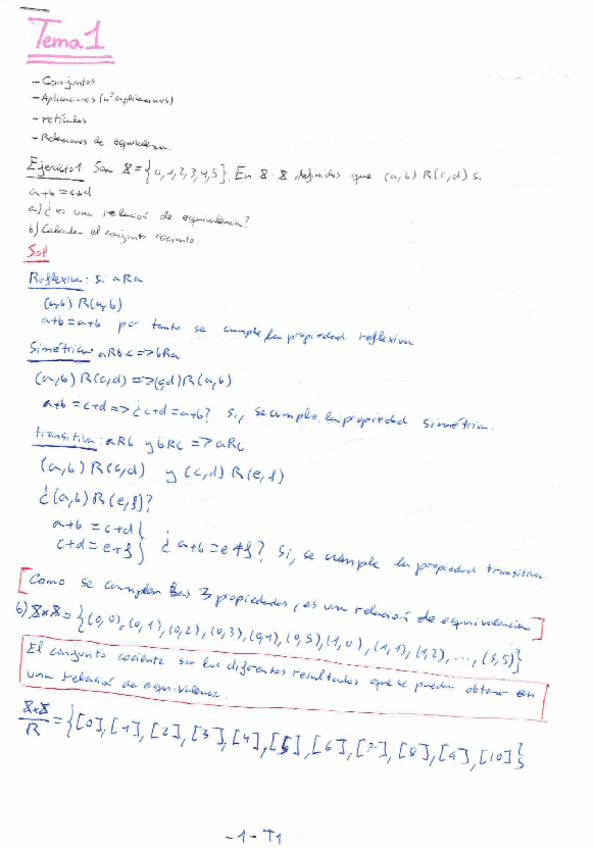 Tema 1
- Conjuntos
- Aplicaciones (nº aplicaciones)
- retículos
- Relaciones de equivalencia.
Ejercicio 1 Son X = {0,1,2,3,4,5}. En X·X definidos que (a,b) R (c,d) si
a+b = c+d
a) ¿es una relación de equivalencia?
b) Calcular el conjunto cociente
Sol
Reflexiva: si aRa
(a,b) R (a,b)
a+b = a+b por tanto se cumple la propiedad reflexiva
Simétrica: aRb <=> bRa
(a,b) R (c,d) => (c,d) R (a,b)
a+b = c+d => ¿c+d = a+b? Si, se cumple la propiedad simétrica.
transitiva: aRb y bRc => aRc
(a,b) R (c,d) y (c,d) R (e,f)
¿(a,b) R (e,f)?
a+b = c+d
c+d = e+f } ¿a+b = e+f? Si, se cumple la propiedad transitiva.
[Como se cumplen las 3 propiedades, es una relación de equivalencia]
b) X×X = {(0,0), (0,1), (0,2), (0,3), (0,4), (0,5), (1,0), (1,1), (1,2), ..., (5,5)}
El conjunto cociente son los diferentes resultados que se pueden obtener en
una relación de equivalencia.
X×X/R = {[0], [1], [2], [3], [4], [5], [6], [7], [8], [9], [10]}
-1- T1